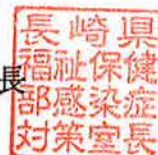 長
長崎県
福祉保健
部感染症
対策室長